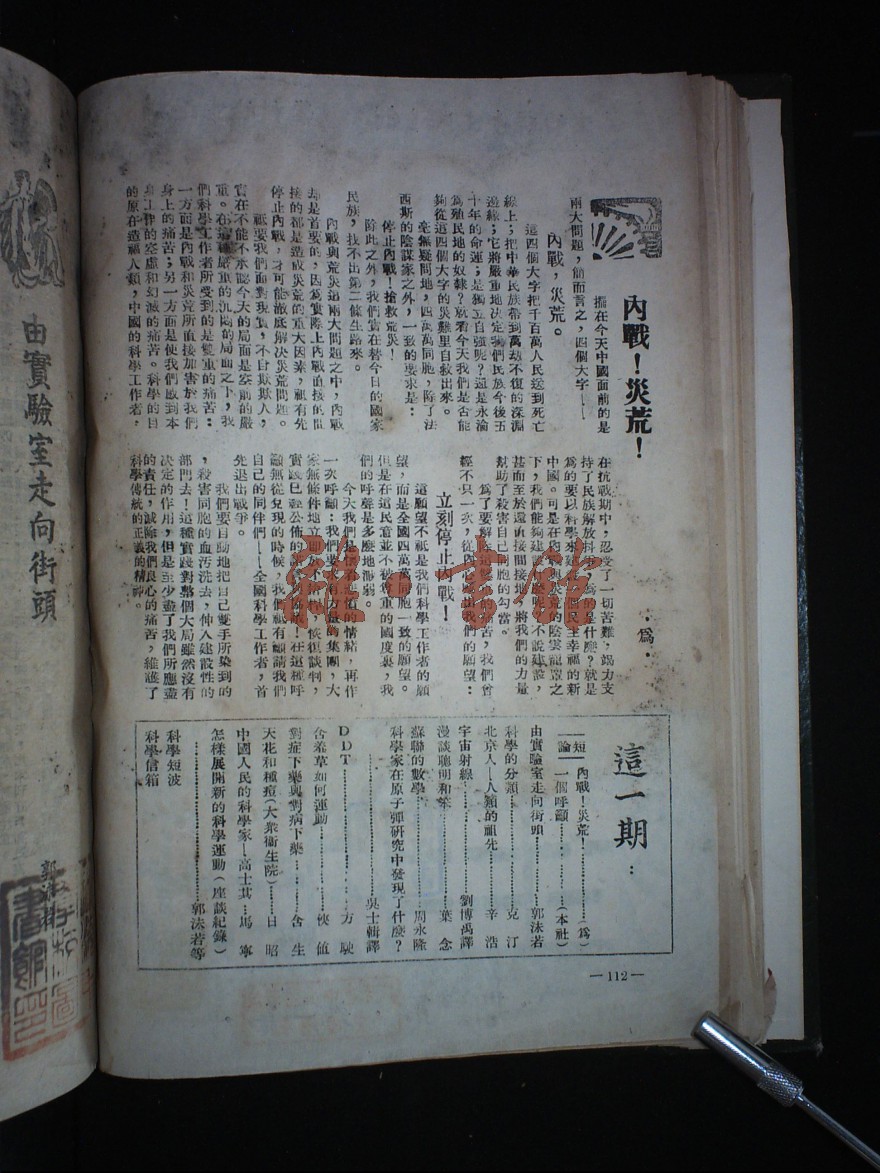 內戰!災荒!
·爲·
擺在今天中國面前的是
兩大問題,簡而言之,四個大字——
內戰,災荒。
這四個大字把千百萬人民送到死亡
線上;把中華民族帶到萬劫不復的深淵
邊緣;它將嚴重地決定我們民族今後五
十年的命運;是獨立自強呢?還是永淪
爲殖民地的奴隸?就看今天我們是否能
夠從這四個大字的災難里自救出來。
毫無疑問地,四萬萬同胞,除了法
西斯的陰謀家之外,一致的要求是:
停止內戰!搶救荒災!
除此之外,我們實在替今日的國家
民族,找不出第二條生路來。
內戰與荒災這兩大問題之中,內戰
却是首要的,因爲實際上內戰直接的間
接的都是造成災荒的重大因素,祗有先
停止內戰,才可能澈底解決災荒問題。
祗要我們面對現實,不自欺欺人,
實在不能不承認今天的局面是空前的嚴
重。在這種嚴重的沉悶的局面之下,我
們科學工作者所受到的是雙重的痛苦:
一方面是內戰和災荒所直接加害於我們
身上的痛苦;另一方面是使我們感到本
身工作的空虛和幻滅的痛苦。科學的目
的原在造福人類,中國的科學工作者,
在抗戰期中,忍受了一切苦難,竭力支
持了民族解放科學,爲的是什麼?就是
爲的要以科學來建立一個民主幸福的新
中國。可是在內戰與災荒的陰雲籠罩之
下,我們能夠建設什麼呢?不說建設,
甚而至於還直接間接地,將我們的力量
幫助了殺害自己同胞的勾當。
爲了要解除這雙重的痛苦,我們曾
經不只一次,從內心喊出我們的願望:
立刻停止內戰!
這願望不祇是我們科學工作者的願
望,而是全國四萬萬同胞一致的願望。
但是在這民意並不被尊重的國度裏,我
們的呼聲是多麼地渺弱。
今天我們是懷着悲憤的情緒,再作
一次呼籲:我們要求有力量的集團,大
家無條件地立即放下武器,恢復談判,
實踐已經公佈的諾言協議!在這種呼
籲無從兌現的時候,我們祇有籲請我們
自己的同伴們——全國科學工作者,首
先退出戰爭。
我們要自動地把自己雙手所染到的
,殺害同胞的血污洗去,伸入建設性的
部門去!這種實踐對整個大局雖然沒有
決定的作用,但是至少盡了我們所應盡
的責任,減除我們良心的痛苦,維護了
科學傳統的正義的精神。
這一期:
短論
內戰!災荒!……(爲)
一個呼籲……(本社)
由實驗室走向街頭……郭沫若
科學的分類……克 汀
北京人—人類的祖先……辛 浩
宇宙射線……劉博禹譯
漫談聰明和笨……葉 念
蘇聯的數學……周永隆
科學家在原子彈研究中發現了什麼?
……吳士輯譯
DDT……方 駛
含羞草如何運動……俠 值
對症下藥與對病下藥……含 生
天花和種痘(大衆衞生院)—日 昭
中國人民的科學家—高士其…馬 寧
怎樣展開新的科學運動(座談紀錄)
……郭沫若等
科學短波
科學信箱
—112—
由實驗室走向街頭
郭沫若